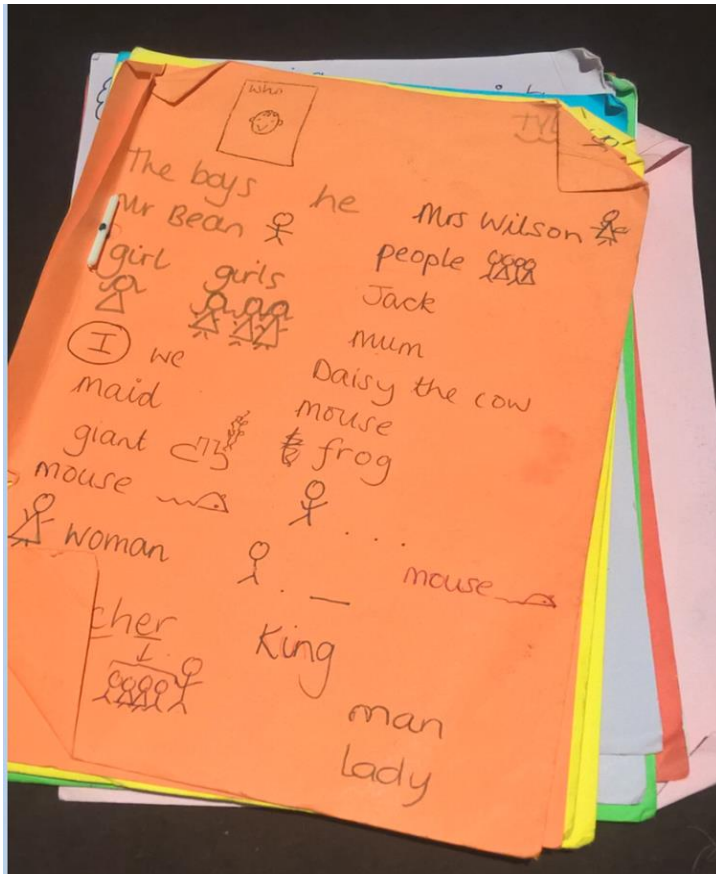 who
The boys he Mrs Wilson
Mr Bean people
girl girls Jack
I we mum
maid Daisy the cow
giant mouse
frog
mouse
woman mouse
cher King
man
Lady